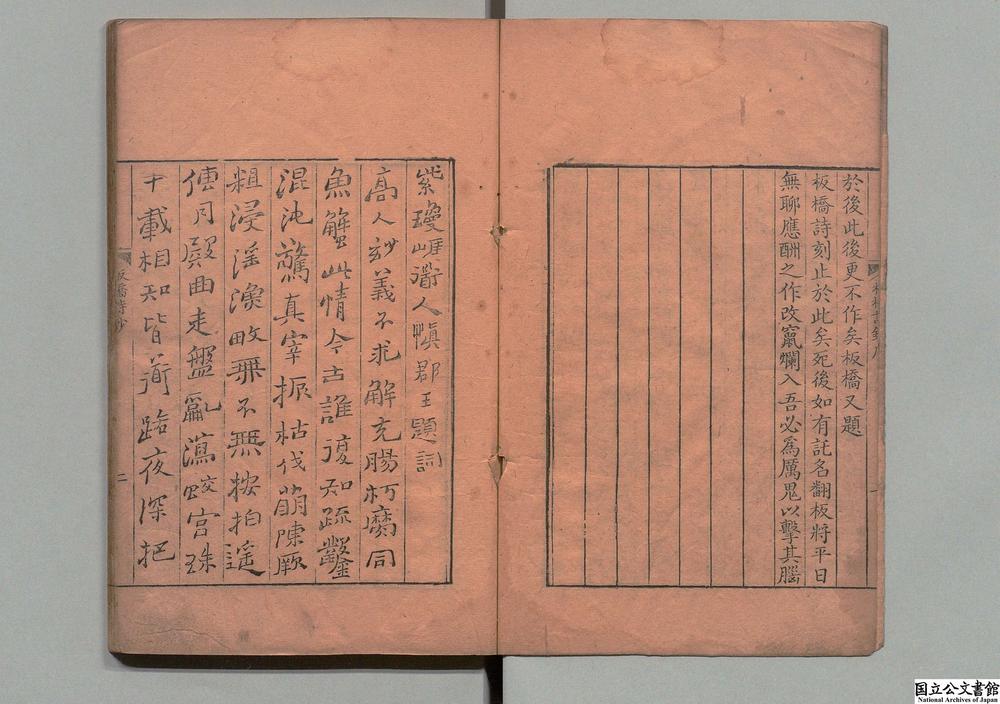 於後此後更不作矣板橋又題
板橋詩刻止於此矣死後如有託名翻板將平日
無聊應酬之作改竄爛入吾必為厲鬼以擊其腦
一
紫瓊崖道人慎郡王題詞
高人妙義不求解充腸朽腐同
魚蟹此情今古誰復知疏鑿
混沌驚真宰振枯伐萌陳厥
粗浸淫漁畋無不無按拍遥
傳月殿曲走盤亂瀉蛟宮珠
十載相知皆道路夜深把
板橋詩鈔
二
国立公文書館
National Archives of Japan